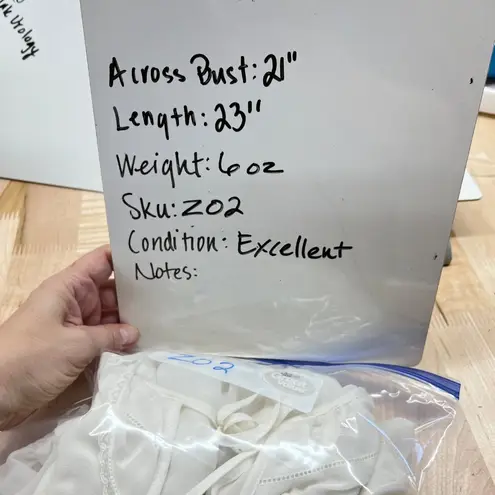 Across Bust: 21"
Length: 23"
Weight: 6 oz
Sku: Z02
Condition: Excellent
Notes:
Z02